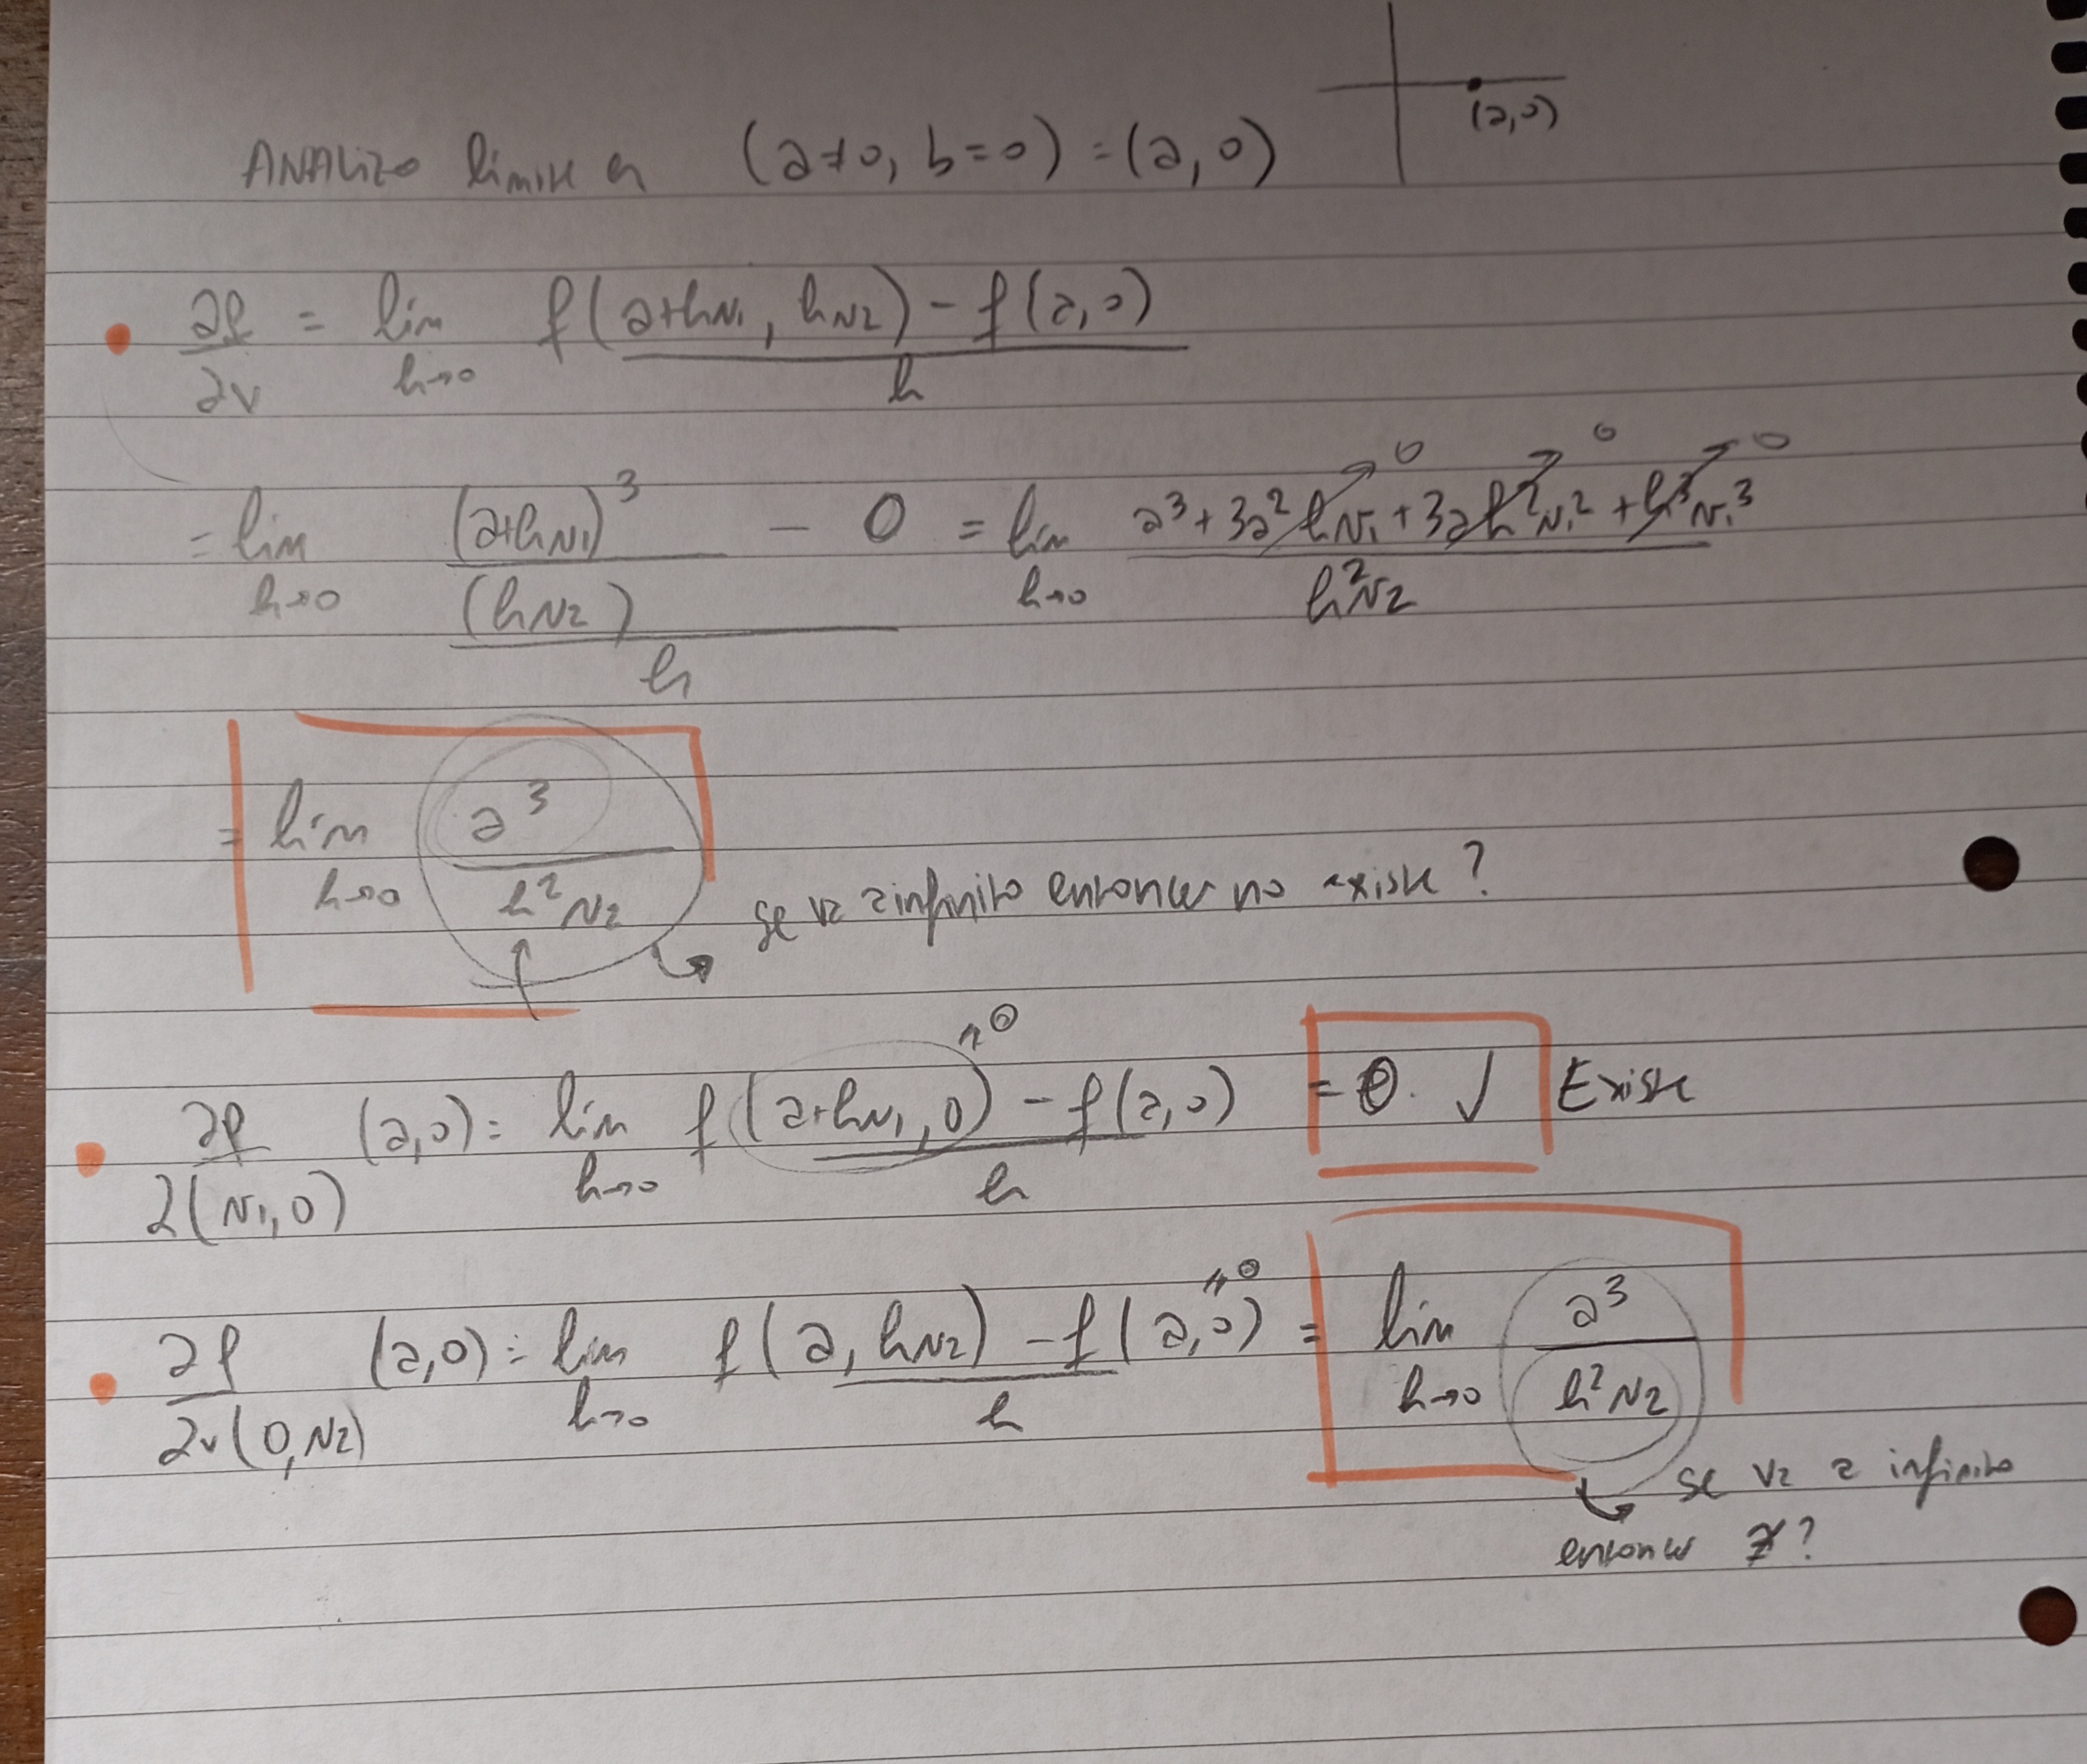 ANALIZO límite en (a≠0, b=0) = (a, 0)
(a,0)
∂f/∂v = lím h→0 (f(a+hv₁, hv₂) - f(a,0))/h
= lím h→0 ((a+hv₁)³/(hv₂) - 0)/h = lím h→0 (a³ + 3a²hv₁ + 3ah²v₁² + h³v₁³)/(h²v₂)
0 0 0
= lím h→0 a³/(h²v₂)
se va a infinito entonces no existe?
∂f/∂(v₁,0) (a,0) = lím h→0 (f(a+hv₁,0) - f(a,0))/h = 0. ✓ Existe
0
∂f/∂v(0,v₂) (a,0) = lím h→0 (f(a, hv₂) - f(a,0))/h = lím h→0 a³/(h²v₂)
0
se va a infinito
entonces ∄?